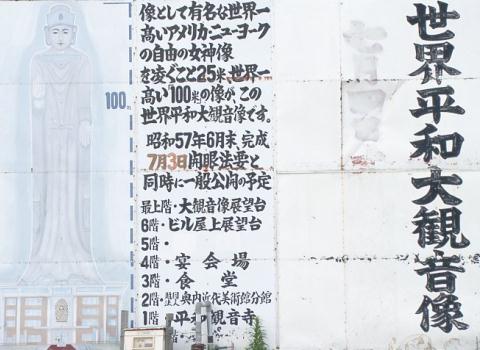 世界平和大観音像
像として有名な世界一
高いアメリカ・ニューヨーク
の自由の女神像
を凌ぐこと25米、世界一
高い100米の像が、この
世界平和大観音像です。
昭和57年6月末、完成
7月3日開眼法要と
同時に一般公開の予定
最上階・大観音像展望台
6階・ビル屋上展望台
5階・
4階・宴会場
3階・食堂
2階・奥内近代美術館分館
1階・平和観音寺
100